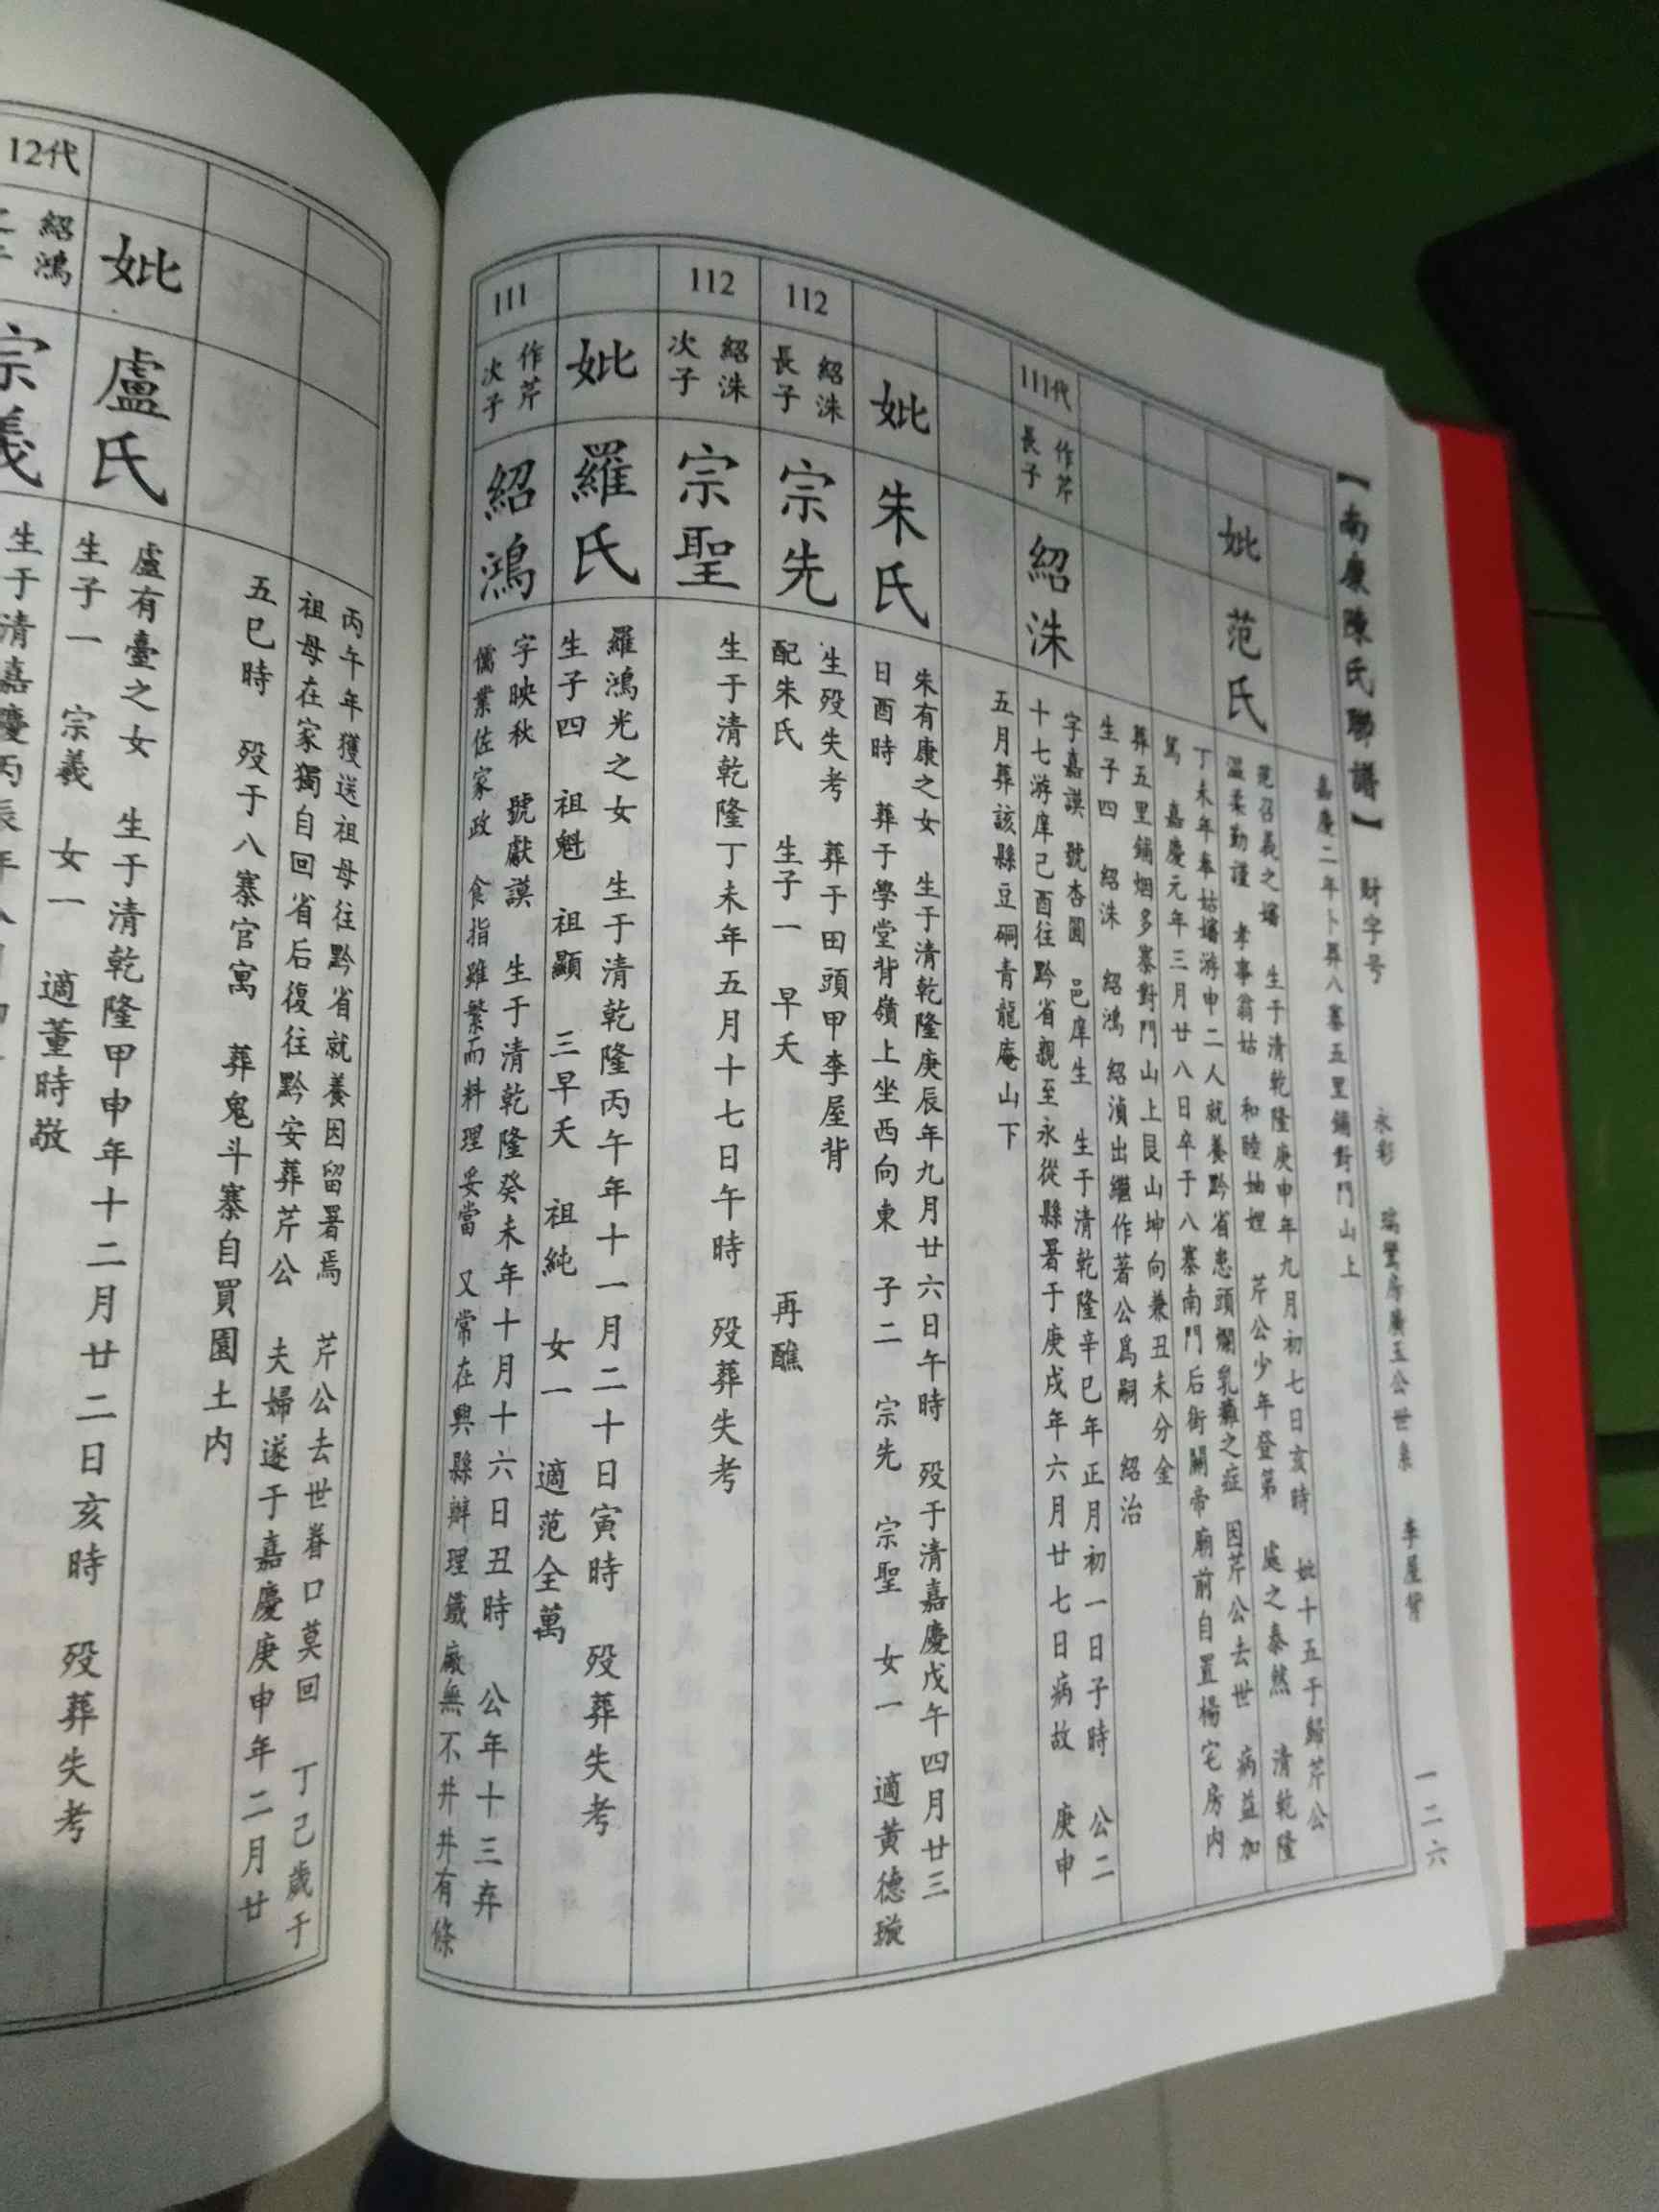 【南康陳氏聯譜】 財字号 永彩 瑞鸞房廣玉公世系 李屋背 一二六
嘉慶二年卜葬八寨五里鋪對門山上
妣
范氏
范召義之嬸 生于清乾隆庚申年九月初七日亥時 妣十五于歸芹公
温柔勤謹 孝事翁姑 和睦妯娌 芹公少年登第 處之泰然 清乾隆
丁未年奉姑嬸游申二人就養黔省患頭爛乳癱之症 因芹公去世 病益加
篤 嘉慶元年三月廿八日卒于八寨南門后街關帝廟前自置楊宅房内
葬五里鋪烟多寨對門山上艮山坤向兼丑未分金
生子四 紹洙 紹鴻 紹湞出繼作著公爲嗣 紹治
111代
作芹
長子
紹洙
字嘉謨 號杏圓 邑庠生 生于清乾隆辛巳年正月初一日子時 公二
十七游庠己酉往黔省親至永從縣署于庚戌年六月廿七日病故 庚申
五月葬該縣豆硐青龍庵山下
妣
朱氏
朱有康之女 生于清乾隆庚辰年九月廿六日午時 殁于清嘉慶戊午四月廿三
日酉時 葬于學堂背嶺上坐西向東 子二 宗先 宗聖 女一 適黄德璇
112
紹洙
長子
宗先
生殁失考 葬于田頭甲李屋背
配朱氏 生子一 早夭 再醮
112
紹洙
次子
宗聖
生于清乾隆丁未年五月十七日午時 殁葬失考
妣
羅氏
羅鴻光之女 生于清乾隆丙午年十一月二十日寅時 殁葬失考
生子四 祖魁 祖顯 三早夭 祖純 女一 適范全萬
111
作芹
次子
紹鴻
字映秋 號獻謨 生于清乾隆癸未年十月十六日丑時 公年十三弃
儒業佐家政 食指雖繁而料理妥當 又常在興縣辦理鐵廠無不井井有條
丙午年獲送祖母往黔省就養因留署焉 芹公去世眷口莫回 丁己歲于
祖母在家獨自回省后復往黔安葬芹公 夫婦遂于嘉慶庚申年二月廿
五巳時 殁于八寨官寓 葬鬼斗寨自買園土内
妣
盧氏
盧有臺之女 生于清乾隆甲申年十二月廿二日亥時 殁葬失考
生子一 宗義 女一 適董時敬
12代
紹鴻
宗義
生于清嘉慶丙辰年